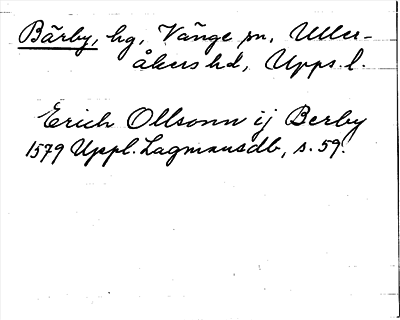 Bärby, hg, Vänge sn, Uller-
åkers hd, Upps. l.
Erich Ollsonn ij Berby
1579 Uppl. Lagmansdb, s. 59.